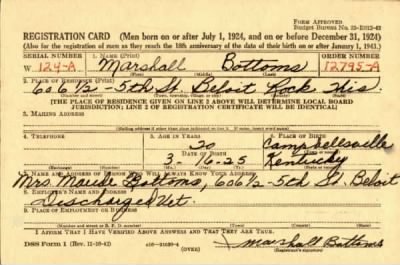 FORM APPROVED
Budget Bureau No. 33-R012-42
REGISTRATION CARD (Men born on or after July 1, 1924, and on or before December 31, 1924)
(Also for the registration of men as they reach the 18th anniversary of the date of their birth on or after January 1, 1943.)
SERIAL NUMBER 1. NAME (Print) ORDER NUMBER
W 124-A Marshall Bottoms 12795-A
(First) (Middle) (Last)
2. PLACE OF RESIDENCE (Print)
606 1/2 5th St. Beloit Rock Wis.
(Number and street) (Town, township, village, or city) (County) (State)
[THE PLACE OF RESIDENCE GIVEN ON LINE 2 ABOVE WILL DETERMINE LOCAL BOARD
JURISDICTION; LINE 2 OF REGISTRATION CERTIFICATE WILL BE IDENTICAL]
3. MAILING ADDRESS
4. TELEPHONE 5. AGE IN YEARS 6. PLACE OF BIRTH
20 Campbellsville
DATE OF BIRTH
3-10-25 Kentucky
7. NAME AND ADDRESS OF PERSON WHO WILL ALWAYS KNOW YOUR ADDRESS
Mrs. Maude Bottoms, 606 1/2-5th St. Beloit
8. EMPLOYER'S NAME AND ADDRESS
Discharged Vet.
9. PLACE OF EMPLOYMENT OR BUSINESS
I AFFIRM THAT I HAVE VERIFIED ABOVE ANSWERS AND THAT THEY ARE TRUE.
DSS Form 1 (Rev. 11-16-42) (OVER) Marshall Bottoms
(Registrant's signature)